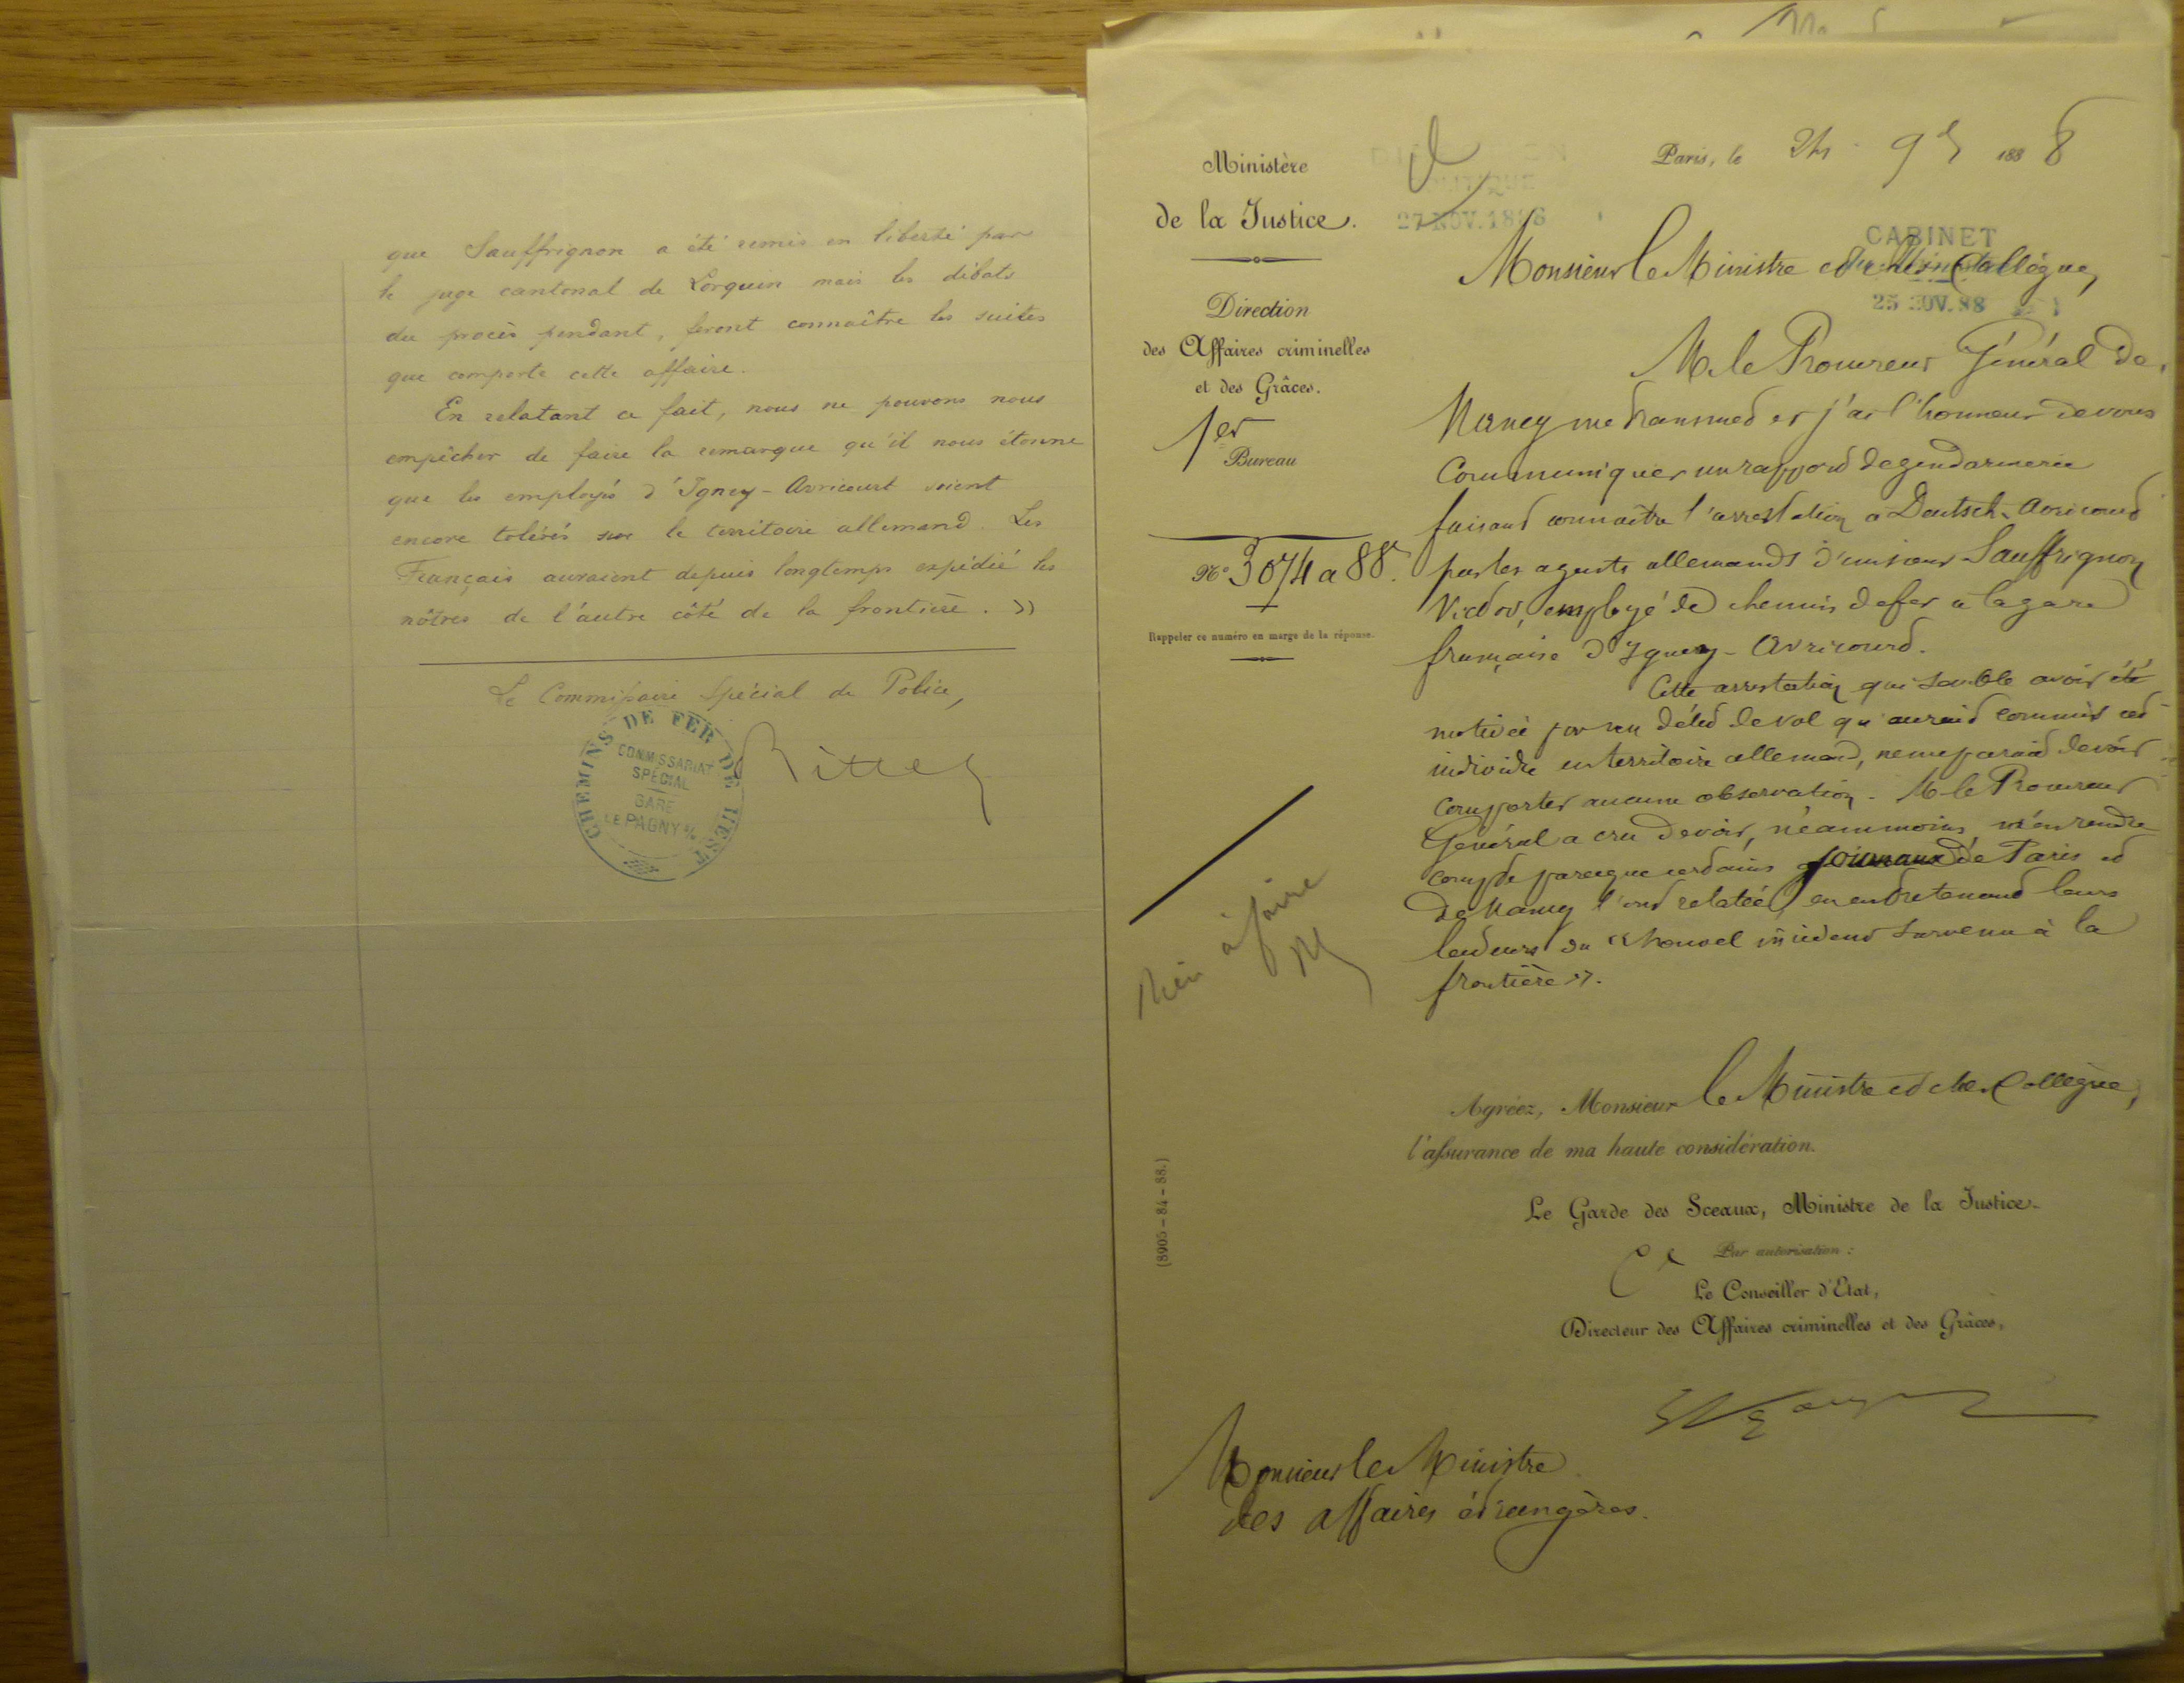 que Sauffrignon a été remis en liberté par
le juge cantonal de Lorquin mais les débats
du procès pendant, feront connaître les suites
que comporte cette affaire.
En relatant ce fait, nous ne pouvons nous
empêcher de faire la remarque qu'il nous étonne
que les employés d'Igney-Avricourt soient
encore tolérés sur le territoire allemand. Les
Français auraient depuis longtemps expédié les
nôtres de l'autre côté de la frontière. »
Le Commissaire Spécial de Police,
CHEMINS DE FER DE L'EST
COMMISSARIAT
SPÉCIAL
GARE
PAGNY S/M
Ritter
Ministère
de la Justice.
Direction
des Affaires criminelles
et des Grâces.
1er
Bureau
N° 3074 a 88.
Rappeler ce numéro en marge de la réponse.
Rien à faire
(8905-84-88.)
27 NOV. 1888
Paris, le 24 9b 1888
CABINET
25 NOV. 88
Monsieur le Ministre et cher Collègue,
M. le Procureur Général de
Nancy me transmet et j'ai l'honneur de vous
communiquer un rapport de gendarmerie
faisant connaître l'arrestation à Deutsch-Avricourt
par les agents allemands d'un sieur Sauffrignon
Victor, employé de chemin de fer à la gare
française d'Igney-Avricourt.
Cette arrestation qui semble avoir été
motivée par un délit de vol qu'aurait commis cet
individu en territoire allemand, ne me paraît devoir
comporter aucune observation. M. le Procureur
Général a cru devoir, néanmoins, m'en rendre
compte parce que certains journaux de Paris et
de Nancy l'ont relatée, en entretenant leurs
lecteurs du « nouvel incident survenu à la
frontière ».
Agréez, Monsieur le Ministre et cher Collègue,
l'assurance de ma haute considération.
Le Garde des Sceaux, Ministre de la Justice.
Par autorisation :
Le Conseiller d'Etat,
Directeur des Affaires criminelles et des Grâces,
Monsieur le Ministre
des affaires étrangères.